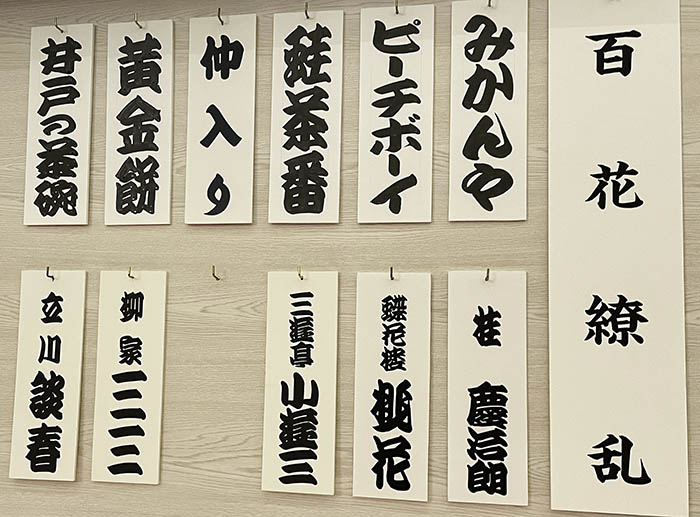 百花繚乱
みかんや
ピーチボーイ
蛙茶番
仲入り
黄金餅
井戸の茶碗
桂 慶治朗
蝶花楼 桃花
三遊亭 小遊三
柳家 三三
立川 談春